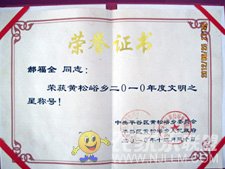 荣誉证书
郝福金 同志：
荣获黄松峪乡二〇一〇年度文明之
星称号！
中共平谷区黄松峪乡委员会
平谷区黄松峪乡人民政府